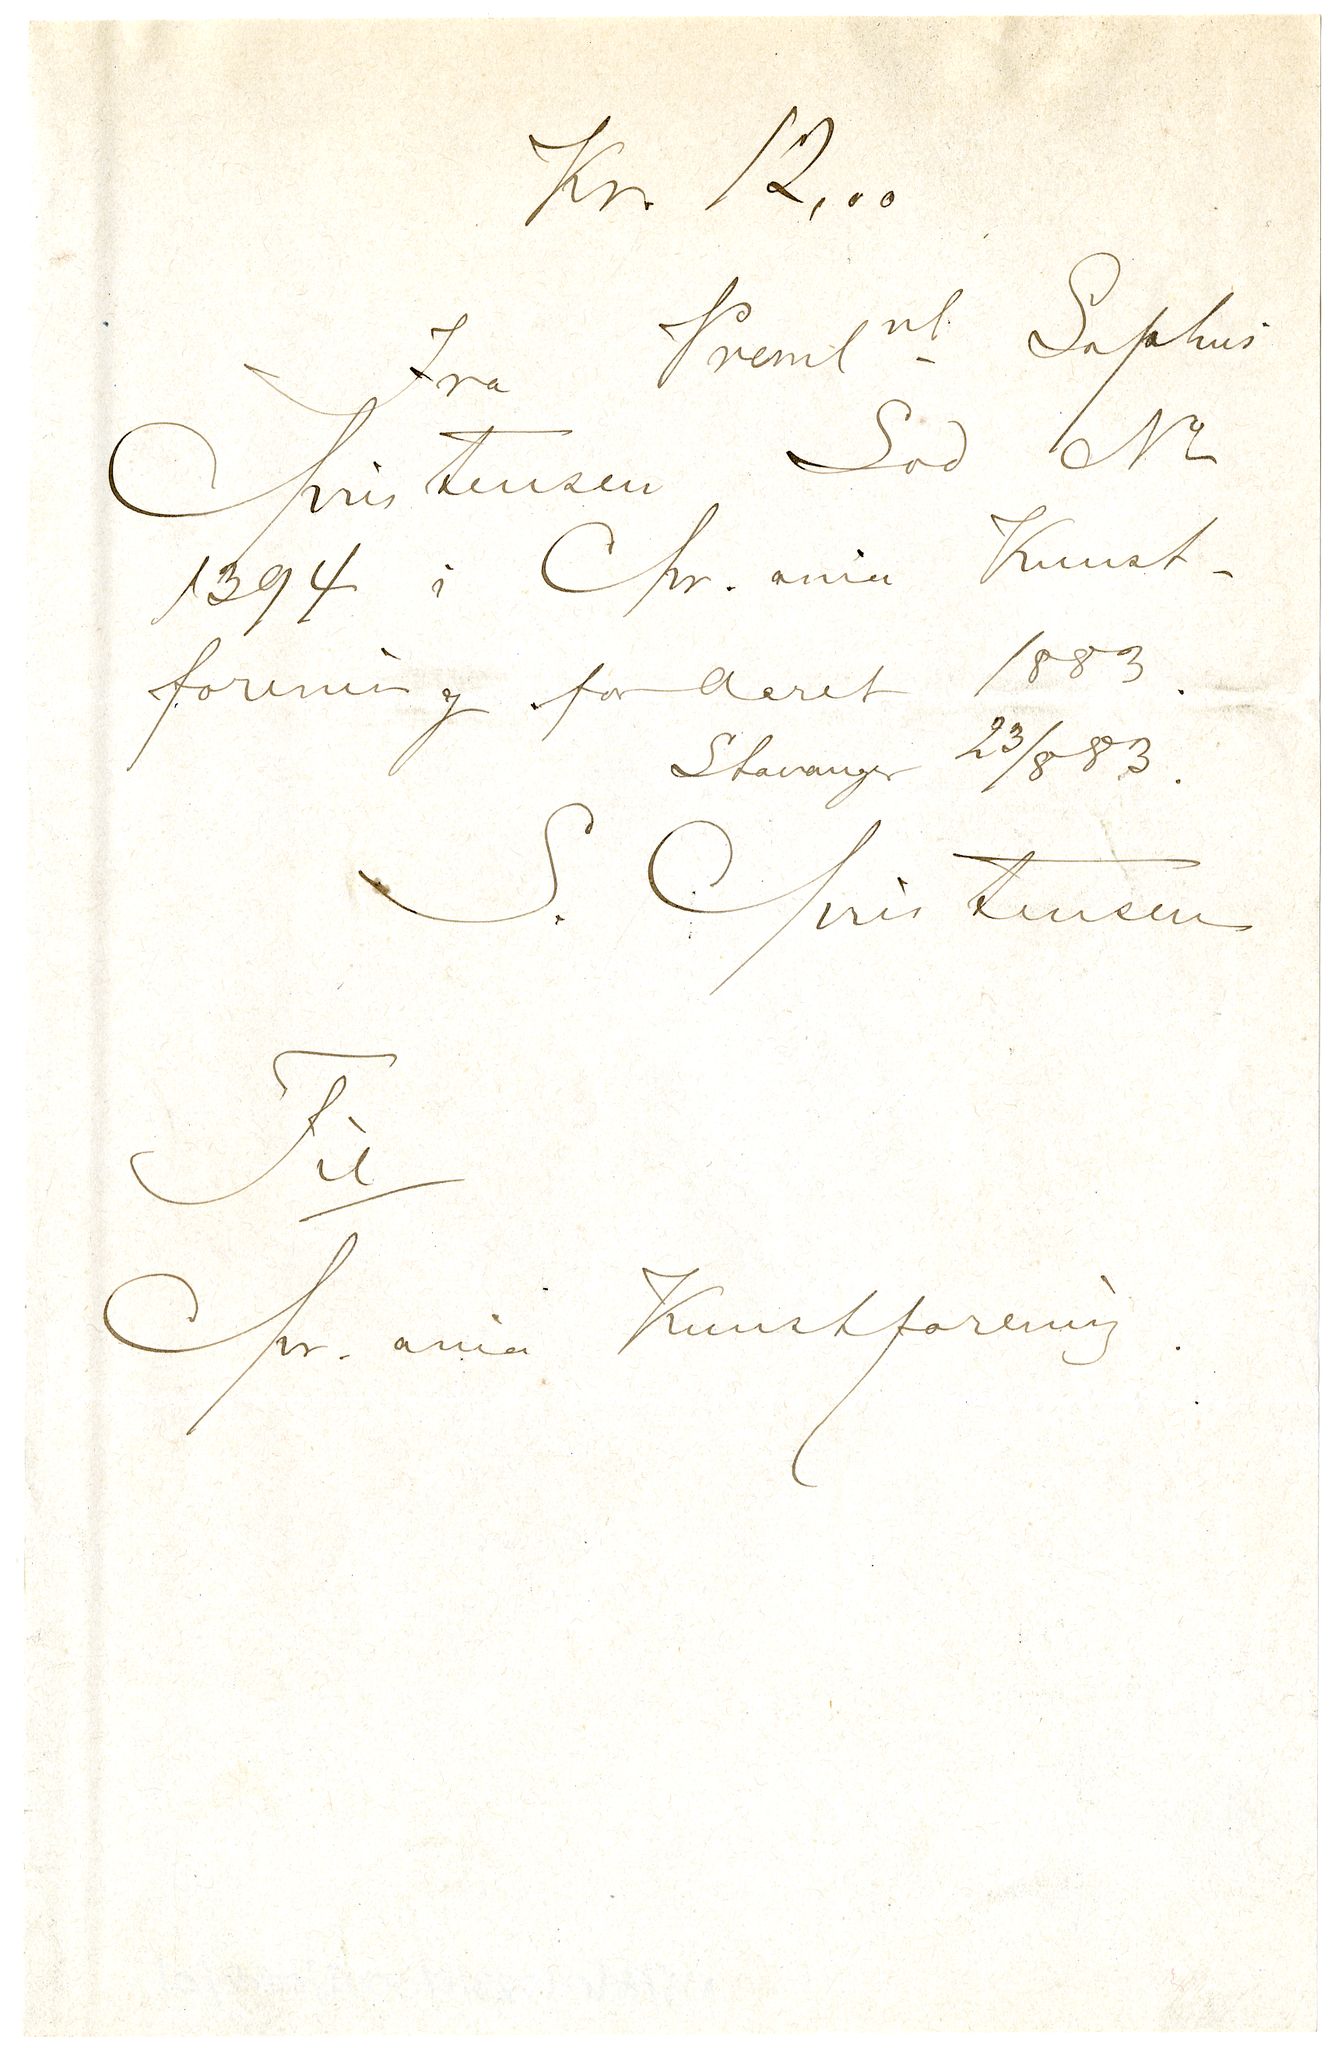 Kr. 12,00
Fra Sophus
Christensen Lod No
1394 i Chr.ania Kunst-
forening for Aaret 1883.
Stavanger 23/8 83.
S. Christensen
Til
Chr.ania Kunstforening.